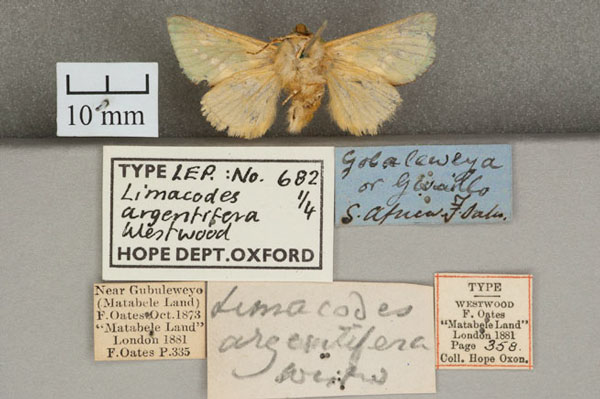 10 mm
TYPE LEP. :No. 682
Limacodes 1/4
argentifera
Westwood
HOPE DEPT.OXFORD
Gobaleweya
or
S. Africa. F. Oates.
Near Gubuleweyo
(Matabele Land)
F. Oates Oct. 1873
"Matabele Land"
London 1881
F. Oates P.335
Limacodes
argentifera
TYPE
WESTWOOD
F. Oates
"Matabele Land"
London 1881
Page 358.
Coll. Hope Oxon.